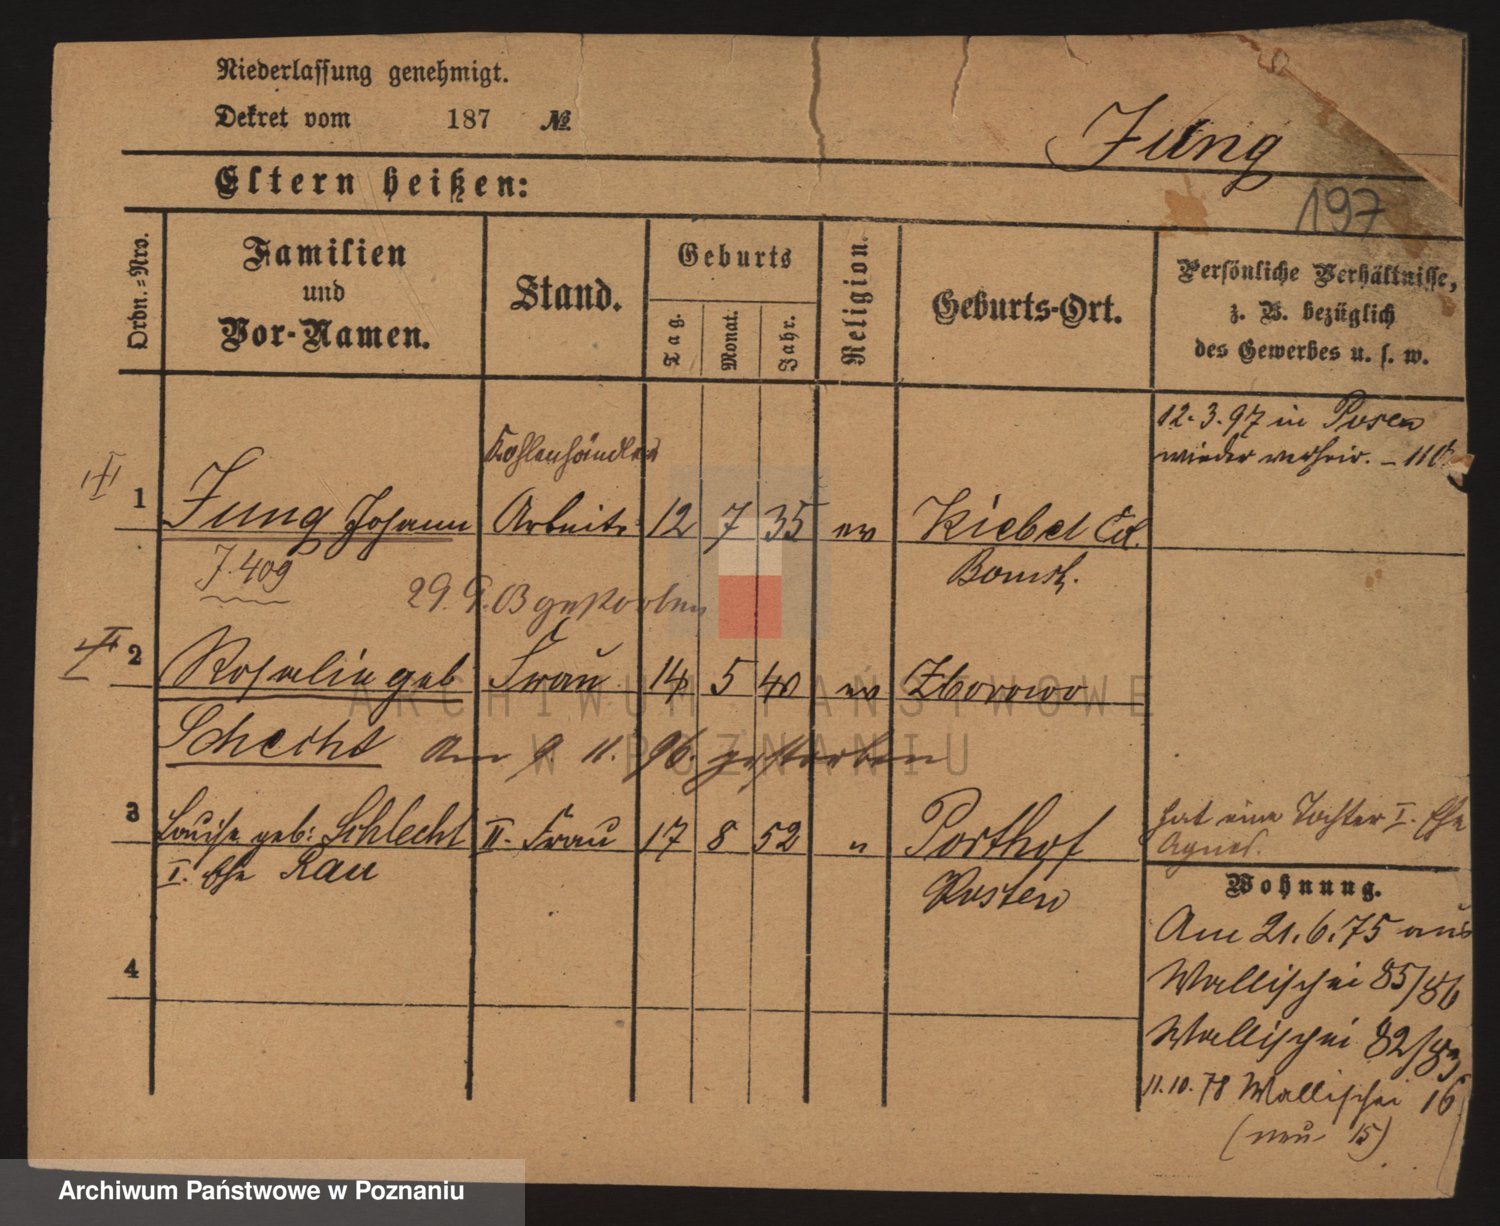 Niederlassung genehmigt.
Dekret vom 187 №
Jung
Eltern heißen:
197
Ordn.=Nro.
Familien
und
Vor-Namen.
Stand.
Geburts
Tag.
Monat.
Jahr.
Religion.
Geburts-Ort.
Persönliche Verhältnisse,
z. B. bezüglich
des Gewerbes u. s. w.
12.3.97 in Posen
wieder verheir.
Kohlenhändler
1 Jung Johann Arbeitr 12 7 35 ev Kiebel
J. 409 Bomst.
29. 9. 03 gestorben
2 Rosalie geb Frau 14 5 40 ev Zborowo
Schecht am 9 11. 96. gestorben
3 Louise geb: Schlecht II. Frau 17 8 52 " Porthof
I. Ehe Rau Posten
hat eine Tochter I. Ehe
Agnes.
4
Wohnung.
Am 21.6.75 aus
Wallischei 85/86
Wallischei 82/83
11.10.78 Wallischei 16
(neu 15)
ARCHIWUM PAŃSTWOWE
W POZNANIU
Archiwum Państwowe w Poznaniu